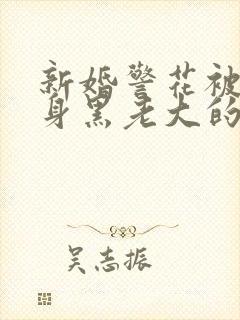 新婚警花被
身黑老大的
吴志振